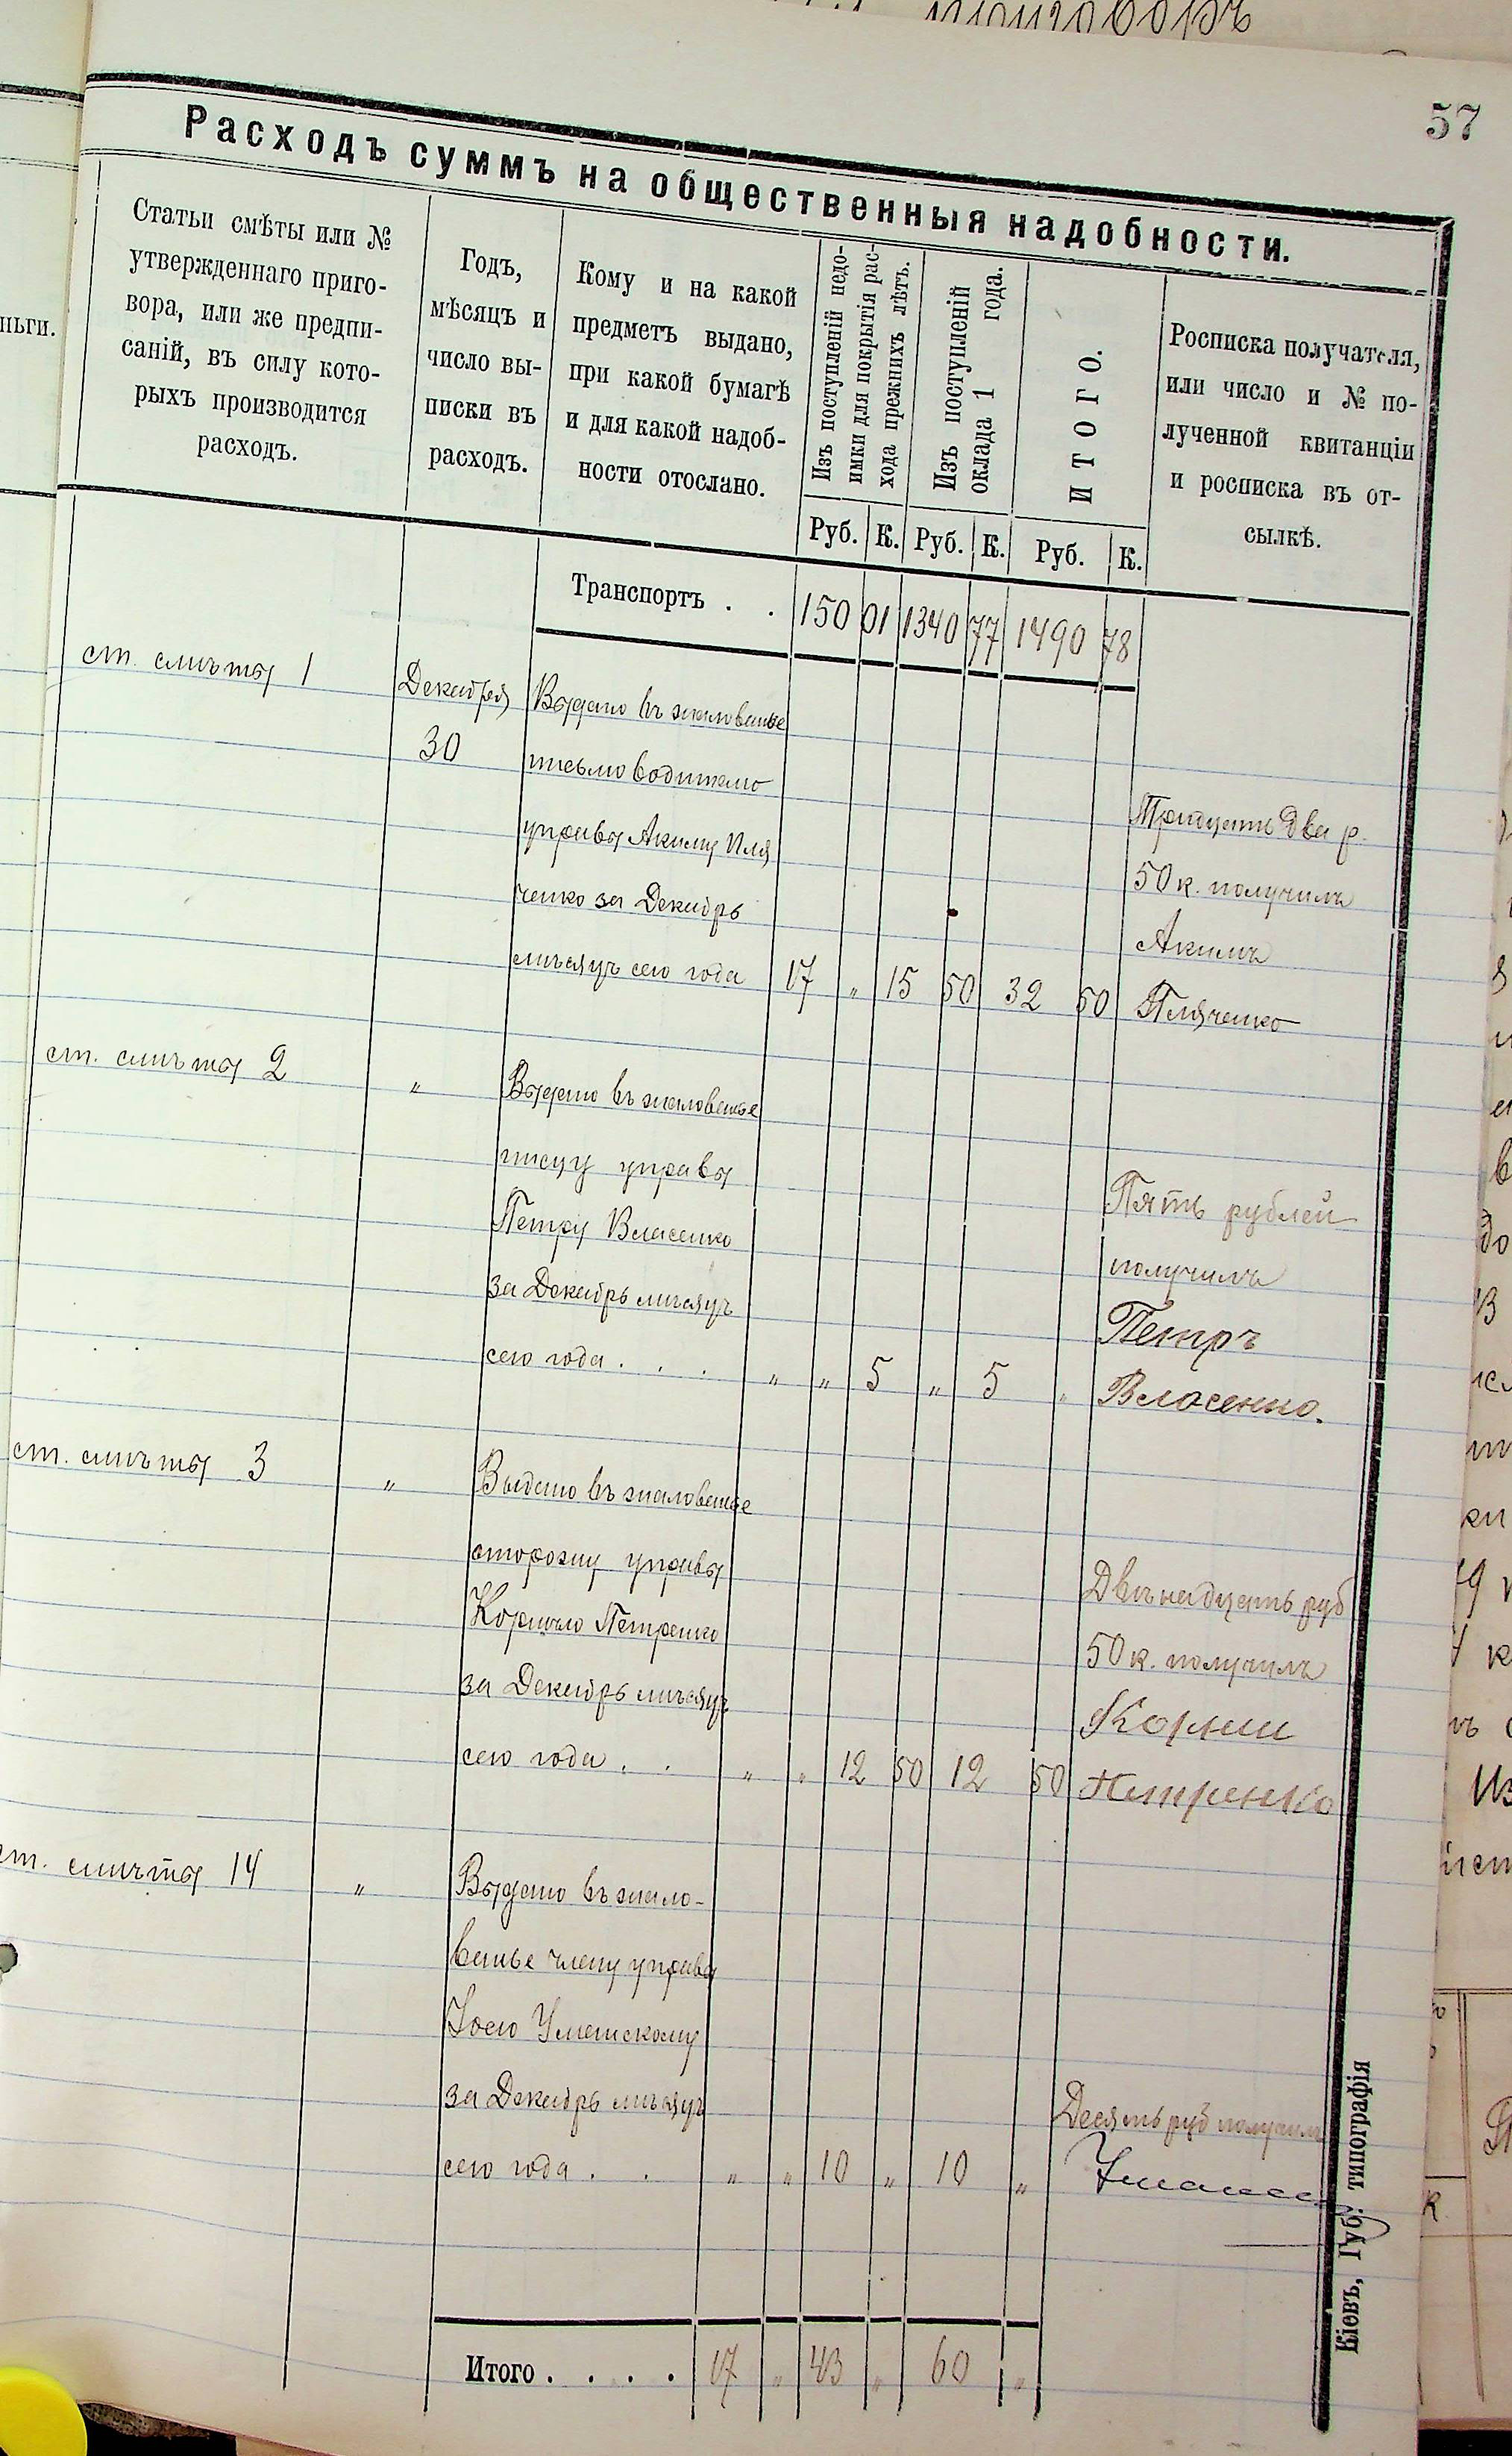 57
Расходъ суммъ на общественныя надобности.
Статьи смѣты или №
утвержденнаго приго-
вора, или же предпи-
саній, въ силу кото-
рыхъ производится
расходъ.
Годъ,
мѣсяцъ и
число вы-
писки въ
расходъ.
Кому и на какой
предметъ выдано,
при какой бумагѣ
и для какой надоб-
ности отослано.
Изъ поступленій недо-
имки для покрытія рас-
хода прежнихъ лѣтъ.
Изъ поступленій
оклада 1 года.
ИТОГО.
Росписка получателя,
или число и № по-
лученной квитанціи
и росписка въ от-
сылкѣ.
Руб. К. Руб. К. Руб. К.
Транспортъ . . 150 01 1340 77 1490 78
ст. смѣты 1
Декабря
30
Выдано въ жалованье
письмоводителю
управы Акиму Пля
ченко за Декабрь
мѣсяцъ сего года 17 „ 15 50 32 50
Тридцать два р.
50 к. получилъ
Акимъ
Пляченко
ст. смѣты 2
„
Выдано въ жалованье
писцу управы
Петру Власенко
за Декабрь мѣсяцъ
сего года . . . „ „ 5 „ 5 „
Пять рублей
получилъ
Петръ
Власенко.
ст. смѣты 3
„
Выдано въ жалованье
сторожу управы
Корнію Петренко
за Декабрь мѣсяцъ
сего года . . „ „ 12 50 12 50
Двѣнадцать руб
50 к. получилъ
Корнии
Петренко
ст. смѣты 14
„
Выдано въ жало-
ванье члену управы
Уманскому
за Декабрь мѣсяцъ
сего года . . „ „ 10 „ 10 „
Десять руб получил
Итого . . . . 17 „ 43 „ 60 „
Кіевъ, Губ. типографія
ньги.